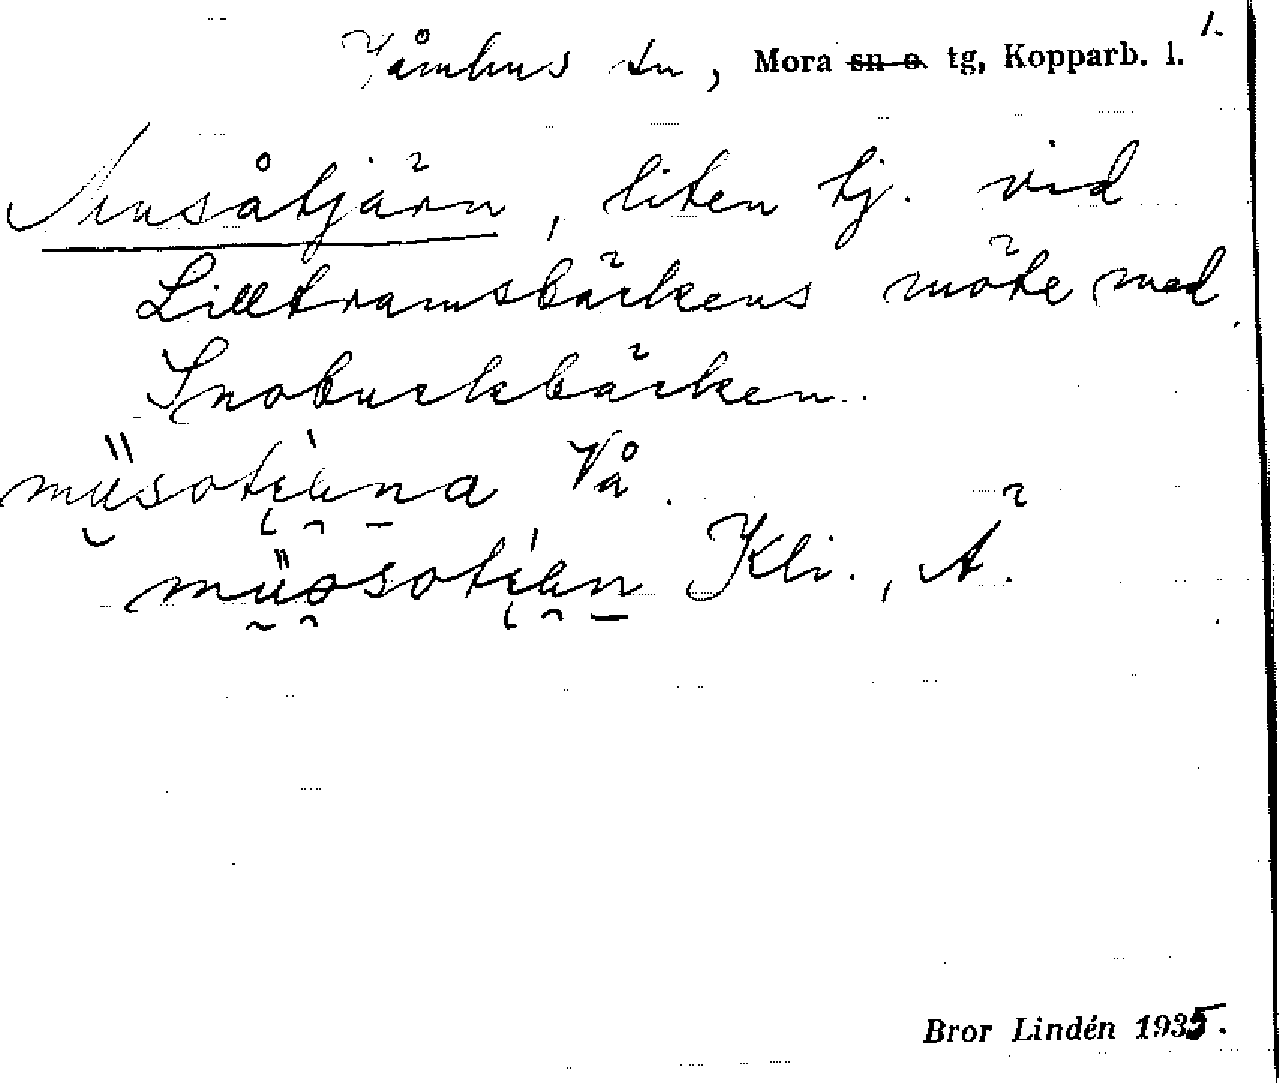 1.
Våmhus sn, Mora sn o. tg, Kopparb. l.
Musåtjärn, liten tj. vid
Lilltramsbäckens möte med
Snobuckbäcken.
Vå.
Kli., Ä.
Bror Lindén 1935.